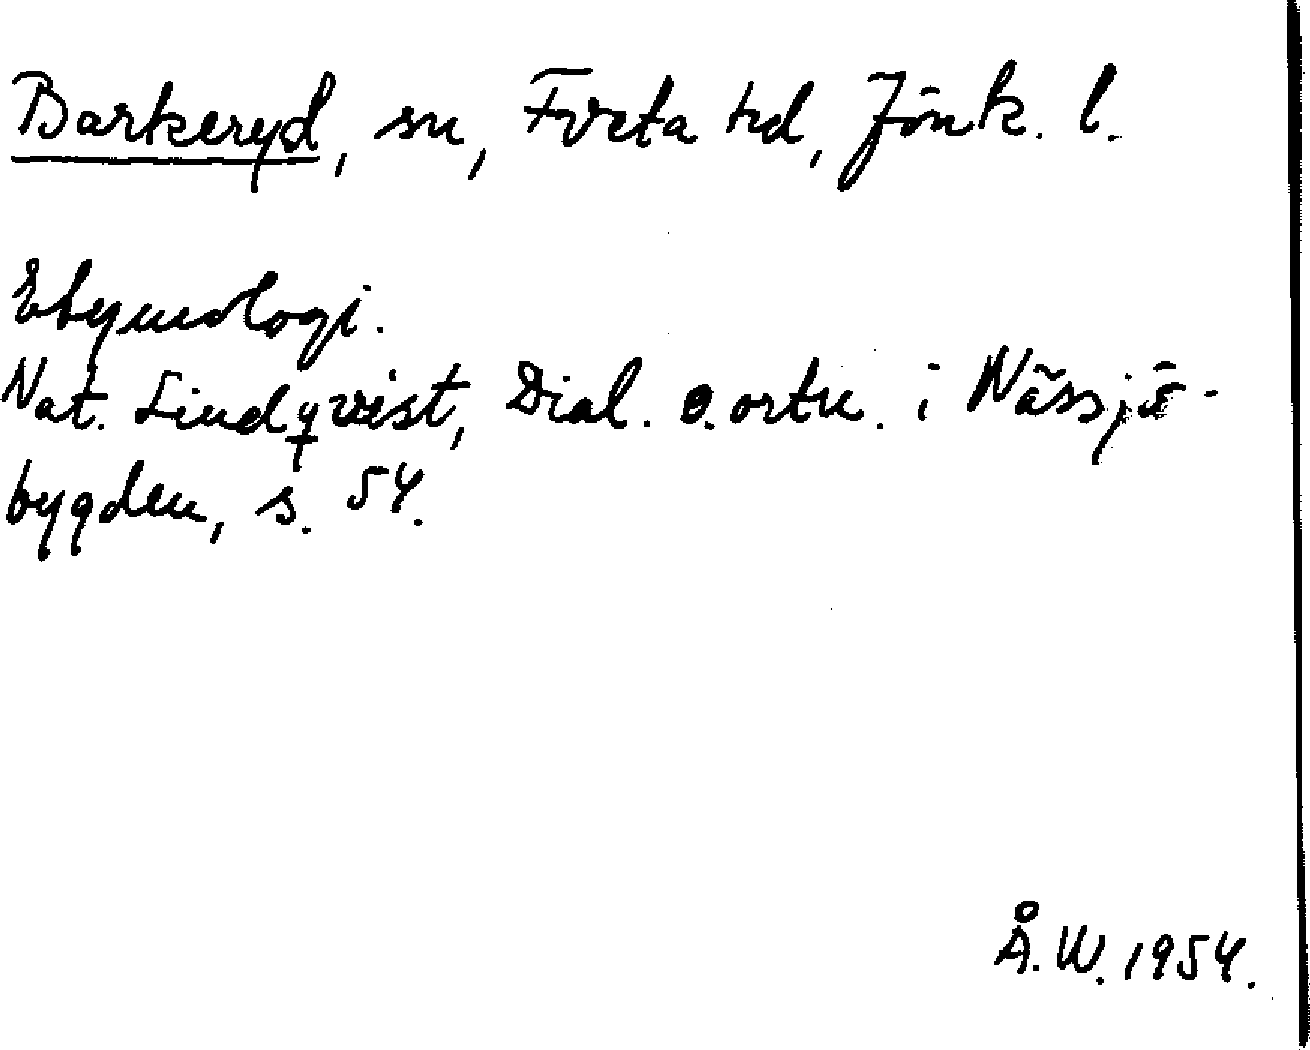 Barkeryd, sn, Tveta hd, Jönk. l.
Etymologi.
Nat. Lindqvist, Dial. o. ortn. i Nässjö-
bygden, s. 54.
Å. W. 1954.